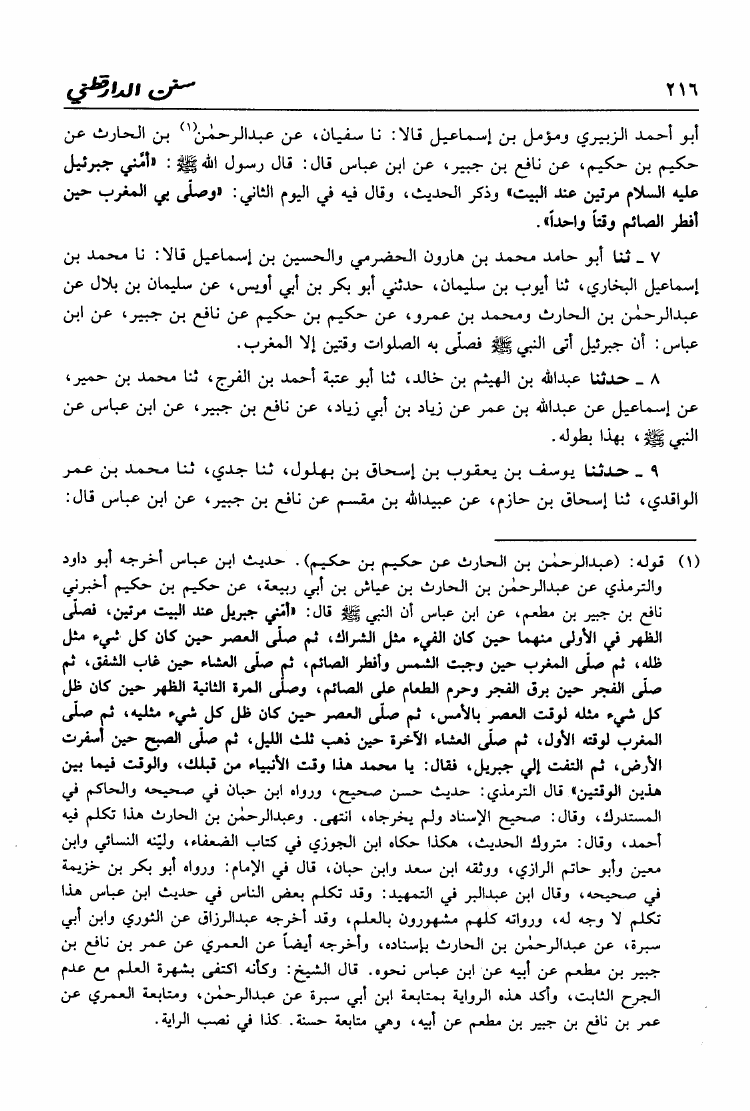 ٢١٦
سنن الدارقطني
أبو أحمد الزبيري ومؤمل بن إسماعيل قالا: نا سفيان، عن عبدالرحمٰن(١) بن الحارث عن
حكيم بن حكيم، عن نافع بن جبير، عن ابن عباس قال: قال رسول الله ﷺ: «أمَّني جبرئيل
عليه السلام مرتين عند البيت» وذكر الحديث، وقال فيه في اليوم الثاني: «وصلّى بي المغرب حين
أفطر الصائم وقتاً واحداً».
٧ ـ ثنا أبو حامد محمد بن هارون الحضرمي والحسين بن إسماعيل قالا: نا محمد بن
إسماعيل البخاري، ثنا أيوب بن سليمان، حدثني أبو بكر بن أبي أويس، عن سليمان بن بلال عن
عبدالرحمٰن بن الحارث ومحمد بن عمرو، عن حكيم بن حكيم عن نافع بن جبير، عن ابن
عباس: أن جبرئيل أتى النبي ﷺ فصلّى به الصلوات وقتين إلا المغرب.
٨ ـ حدثنا عبدالله بن الهيثم بن خالد، ثنا أبو عتبة أحمد بن الفرج، ثنا محمد بن حمير،
عن إسماعيل عن عبدالله بن عمر عن زياد بن أبي زياد، عن نافع بن جبير، عن ابن عباس عن
النبي ﷺ، بهذا بطوله.
٩ ـ حدثنا يوسف بن يعقوب بن إسحاق بن بهلول، ثنا جدي، ثنا محمد بن عمر
الواقدي، ثنا إسحاق بن حازم، عن عبيدالله بن مقسم عن نافع بن جبير، عن ابن عباس قال:
(١) قوله: (عبدالرحمٰن بن الحارث عن حكيم بن حكيم). حديث ابن عباس أخرجه أبو داود
والترمذي عن عبدالرحمٰن بن الحارث بن عياش بن أبي ربيعة، عن حكيم بن حكيم أخبرني
نافع بن جبير بن مطعم، عن ابن عباس أن النبي ﷺ قال: «أمّني جبريل عند البيت مرتين، فصلّى
الظهر في الأولى منهما حين كان الفيء مثل الشراك، ثم صلّى العصر حين كان كل شيء مثل
ظله، ثم صلّى المغرب حين وجبت الشمس وأفطر الصائم، ثم صلّى العشاء حين غاب الشفق، ثم
صلّى الفجر حين برق الفجر وحرم الطعام على الصائم، وصلّى المرة الثانية الظهر حين كان ظل
كل شيء مثله لوقت العصر بالأمس، ثم صلّى العصر حين كان ظل كل شيء مثليه، ثم صلّى
المغرب لوقته الأول، ثم صلّى العشاء الآخرة حين ذهب ثلث الليل، ثم صلّى الصبح حين أسفرت
الأرض، ثم التفت إلي جبريل، فقال: يا محمد هذا وقت الأنبياء من قبلك، والوقت فيما بين
هذين الوقتين» قال الترمذي: حديث حسن صحيح، ورواه ابن حبان في صحيحه والحاكم في
المستدرك، وقال: صحيح الإسناد ولم يخرجاه، انتهى. وعبدالرحمٰن بن الحارث هذا تكلم فيه
أحمد، وقال: متروك الحديث، هكذا حكاه ابن الجوزي في كتاب الضعفاء، وليّنه النسائي وابن
معين وأبو حاتم الرازي، ووثقه ابن سعد وابن حبان، قال في الإمام: ورواه أبو بكر بن خزيمة
في صحيحه، وقال ابن عبدالبر في التمهيد: وقد تكلم بعض الناس في حديث ابن عباس هذا
تكلم لا وجه له، ورواته كلهم مشهورون بالعلم، وقد أخرجه عبدالرزاق عن الثوري وابن أبي
سبرة، عن عبدالرحمٰن بن الحارث بإسناده، وأخرجه أيضاً عن العمري عن عمر بن نافع بن
جبير بن مطعم عن أبيه عن ابن عباس نحوه. قال الشيخ: وكأنه اكتفى بشهرة العلم مع عدم
الجرح الثابت، وأكد هذه الرواية بمتابعة ابن أبي سبرة عن عبدالرحمٰن، ومتابعة العمري عن
عمر بن نافع بن جبير بن مطعم عن أبيه، وهي متابعة حسنة. كذا في نصب الراية.